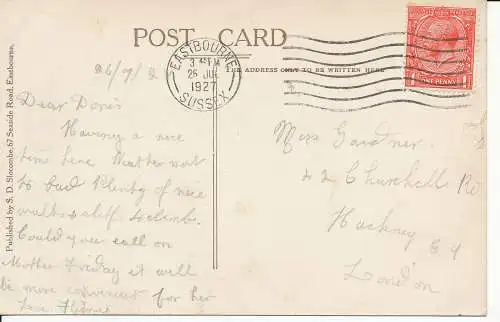 POST CARD
THE ADDRESS ONLY TO BE WRITTEN HERE
EASTBOURNE
3 45 PM
26 JUL
1927
SUSSEX
ONE PENNY
Published by S. D. Slocombe. 67 Seaside Road, Eastbourne.
26/7/2
Dear Doris
Having a nice
time here Weather not
to bad Plenty of nice
walks & cliff to climb.
Could you call on
Mother Friday it will
be more convenient for her
Love
Miss Gardner
Churchill Rd
Hackney E 9
London